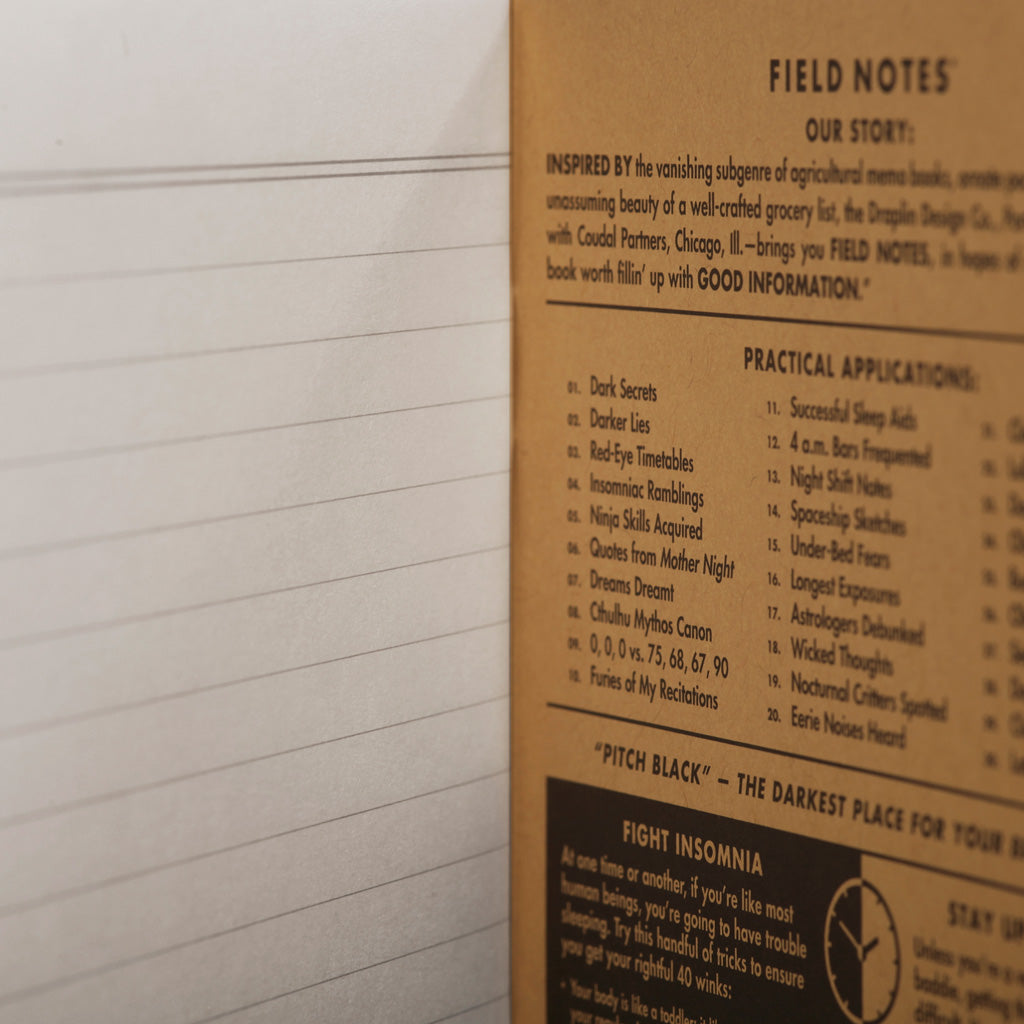 FIELD NOTES
OUR STORY:
INSPIRED BY the vanishing subgenre of agricultural memo books, ornate
unassuming beauty of a well-crafted grocery list, the Draplin Design Co.,
with Coudal Partners, Chicago, Ill.—brings you FIELD NOTES, in hopes of
book worth fillin' up with GOOD INFORMATION."
PRACTICAL APPLICATIONS:
01. Dark Secrets
02. Darker Lies
03. Red-Eye Timetables
04. Insomniac Ramblings
05. Ninja Skills Acquired
06. Quotes from Mother Night
07. Dreams Dreamt
08. Cthulhu Mythos Canon
09. 0, 0, 0 vs. 75, 68, 67, 90
10. Furies of My Recitations
11. Successful Sleep Aids
12. 4 a.m. Bars Frequented
13. Night Shift Notes
14. Spaceship Sketches
15. Under-Bed Fears
16. Longest Exposures
17. Astrologers Debunked
18. Wicked Thoughts
19. Nocturnal Critters Spotted
20. Eerie Noises Heard
"PITCH BLACK" – THE DARKEST PLACE FOR YOUR
FIGHT INSOMNIA
At one time or another, if you're like most
human beings, you're going to have trouble
sleeping. Try this handful of tricks to ensure
you get your rightful 40 winks:
• Your body is like a toddler:
STAY
Unless you're a
getting